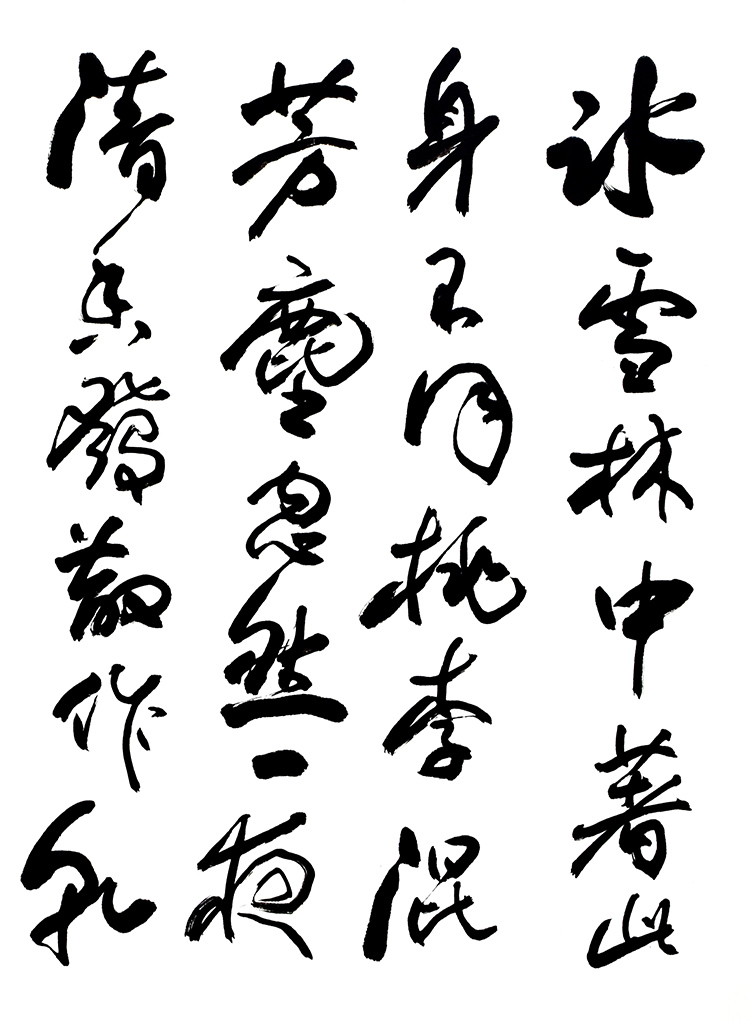 冰雪林中著此
身不同桃李混
芳塵忽然一夜
清香發散作乾